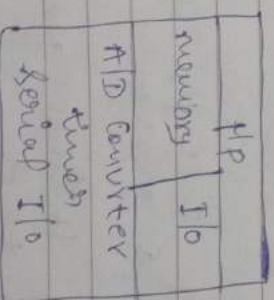 μp
memory I/O
A/D Converter
timer
Serial I/O